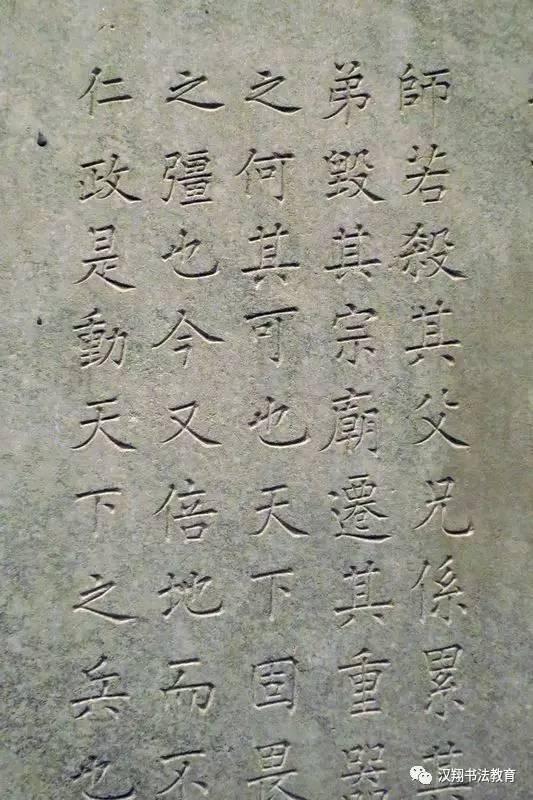 師若殺其父兄係累其
弟毀其宗廟遷其重器
之何其可也天下固畏
之彊也今又倍地而不
仁政是動天下之兵也
汉翔书法教育